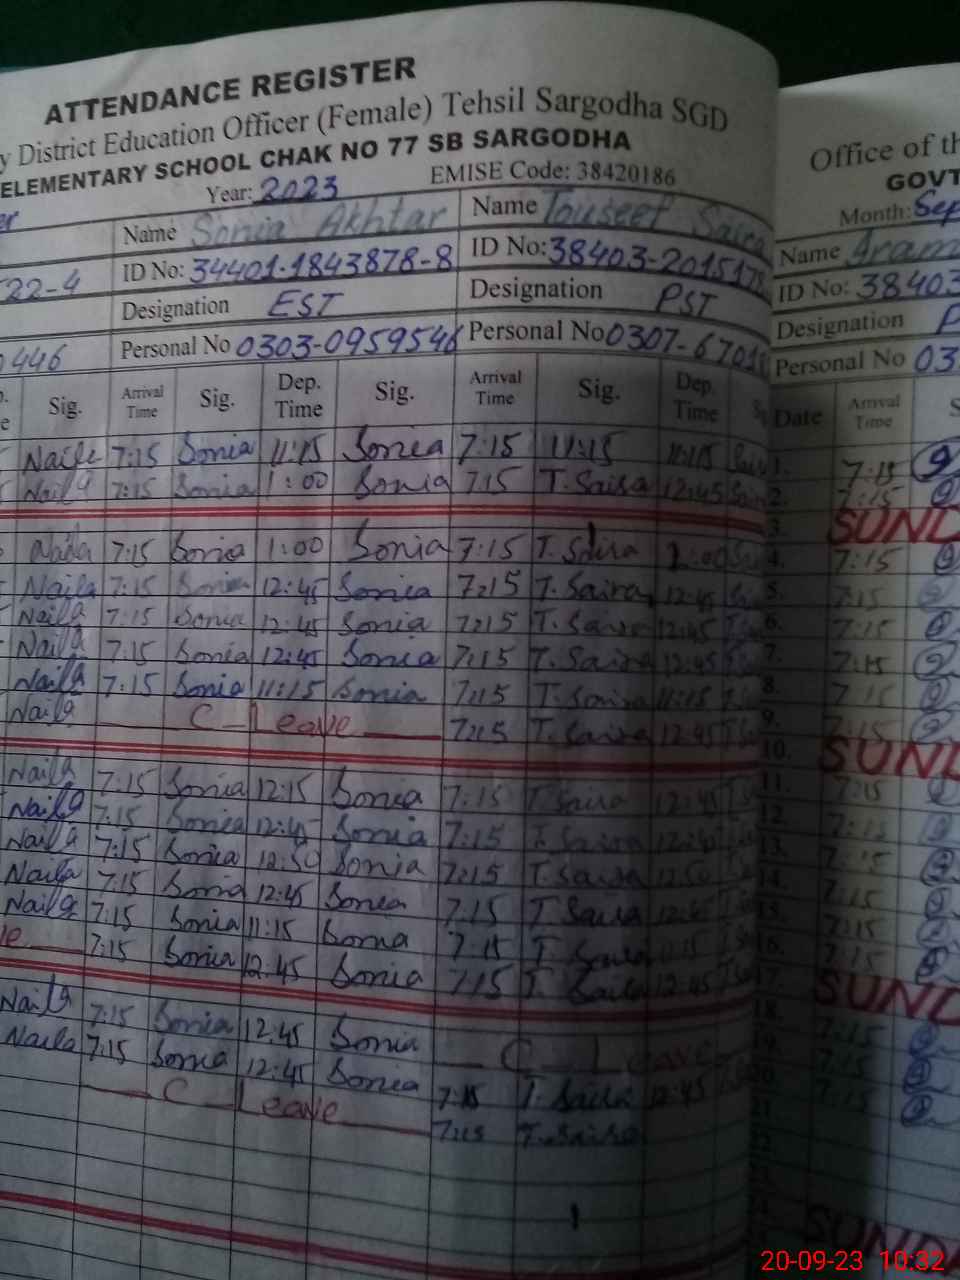 ATTENDANCE REGISTER
y District Education Officer (Female) Tehsil Sargodha SGD
ELEMENTARY SCHOOL CHAK NO 77 SB SARGODHA
Year: 2023 EMISE Code: 38420186
er Name Sonia Akhtar Name Touseef Saira
22-4 ID No: 34401-1843878-8 ID No: 38403-2015178
Designation EST Designation PST
446 Personal No 0303-0959546 Personal No 0307-6701
e Sig. Arrival Time Sig. Dep. Time Sig. Arrival Time Sig. Dep. Time
Naila 7:15 Sonia 11:15 Sonia 7:15 11:15 11:15
Naila 7:15 Sonia 1:00 Sonia 7:15 T.Saira 12:45
Naila 7:15 Sonia 1:00 Sonia 7:15 T.Saira
Naila 7:15 Sonia 12:45 Sonia 7:15 T.Saira 12:45
Naila 7:15 Sonia 12:45 Sonia 7:15 T.Saira 12:45
Naila 7:15 Sonia 12:45 Sonia 7:15 T.Saira 12:45
Naila 7:15 Sonia 11:15 Sonia 7:15 T.Saira 11:15
Naila C Leave 7:15 T.Saira 12:45
Naila 7:15 Sonia 12:15 Sonia 7:15 T.Saira 12:45
Naila 7:15 Sonia 12:45 Sonia 7:15 T.Saira
Naila 7:15 Sonia 12:50 Sonia 7:15 T.Saira 12:50
Naila 7:15 Sonia 12:45 Sonia 7:15 T.Saira 12:45
Naila 7:15 Sonia 11:15 Sonia 7:15 T.Saira
ve 7:15 Sonia 12:45 Sonia 7:15 T.Saira 12:45
Naila 7:15 Sonia 12:45 Sonia C Leave
Naila 7:15 Sonia 12:45 Sonia 7:15 T.Saira 12:45
C Leave 7:15 T.Saira
Office of th
GOVT
Month: Sep
Name Aram
ID No: 38403
Designation P
Personal No 03
Date Arrival Time S
1. 7:15
2. 7:15
3. SUND
4. 7:15
5. 7:15
6. 7:15
7. 7:15
8. 7:15
9. 7:15
10. SUND
11. 7:15
12. 7:15
13. 7:15
14. 7:15
15. 7:15
16. 7:15
17. SUND
18. 7:15
19. 7:15
20. 7:15
21
22
SUND
20-09-23 10:32